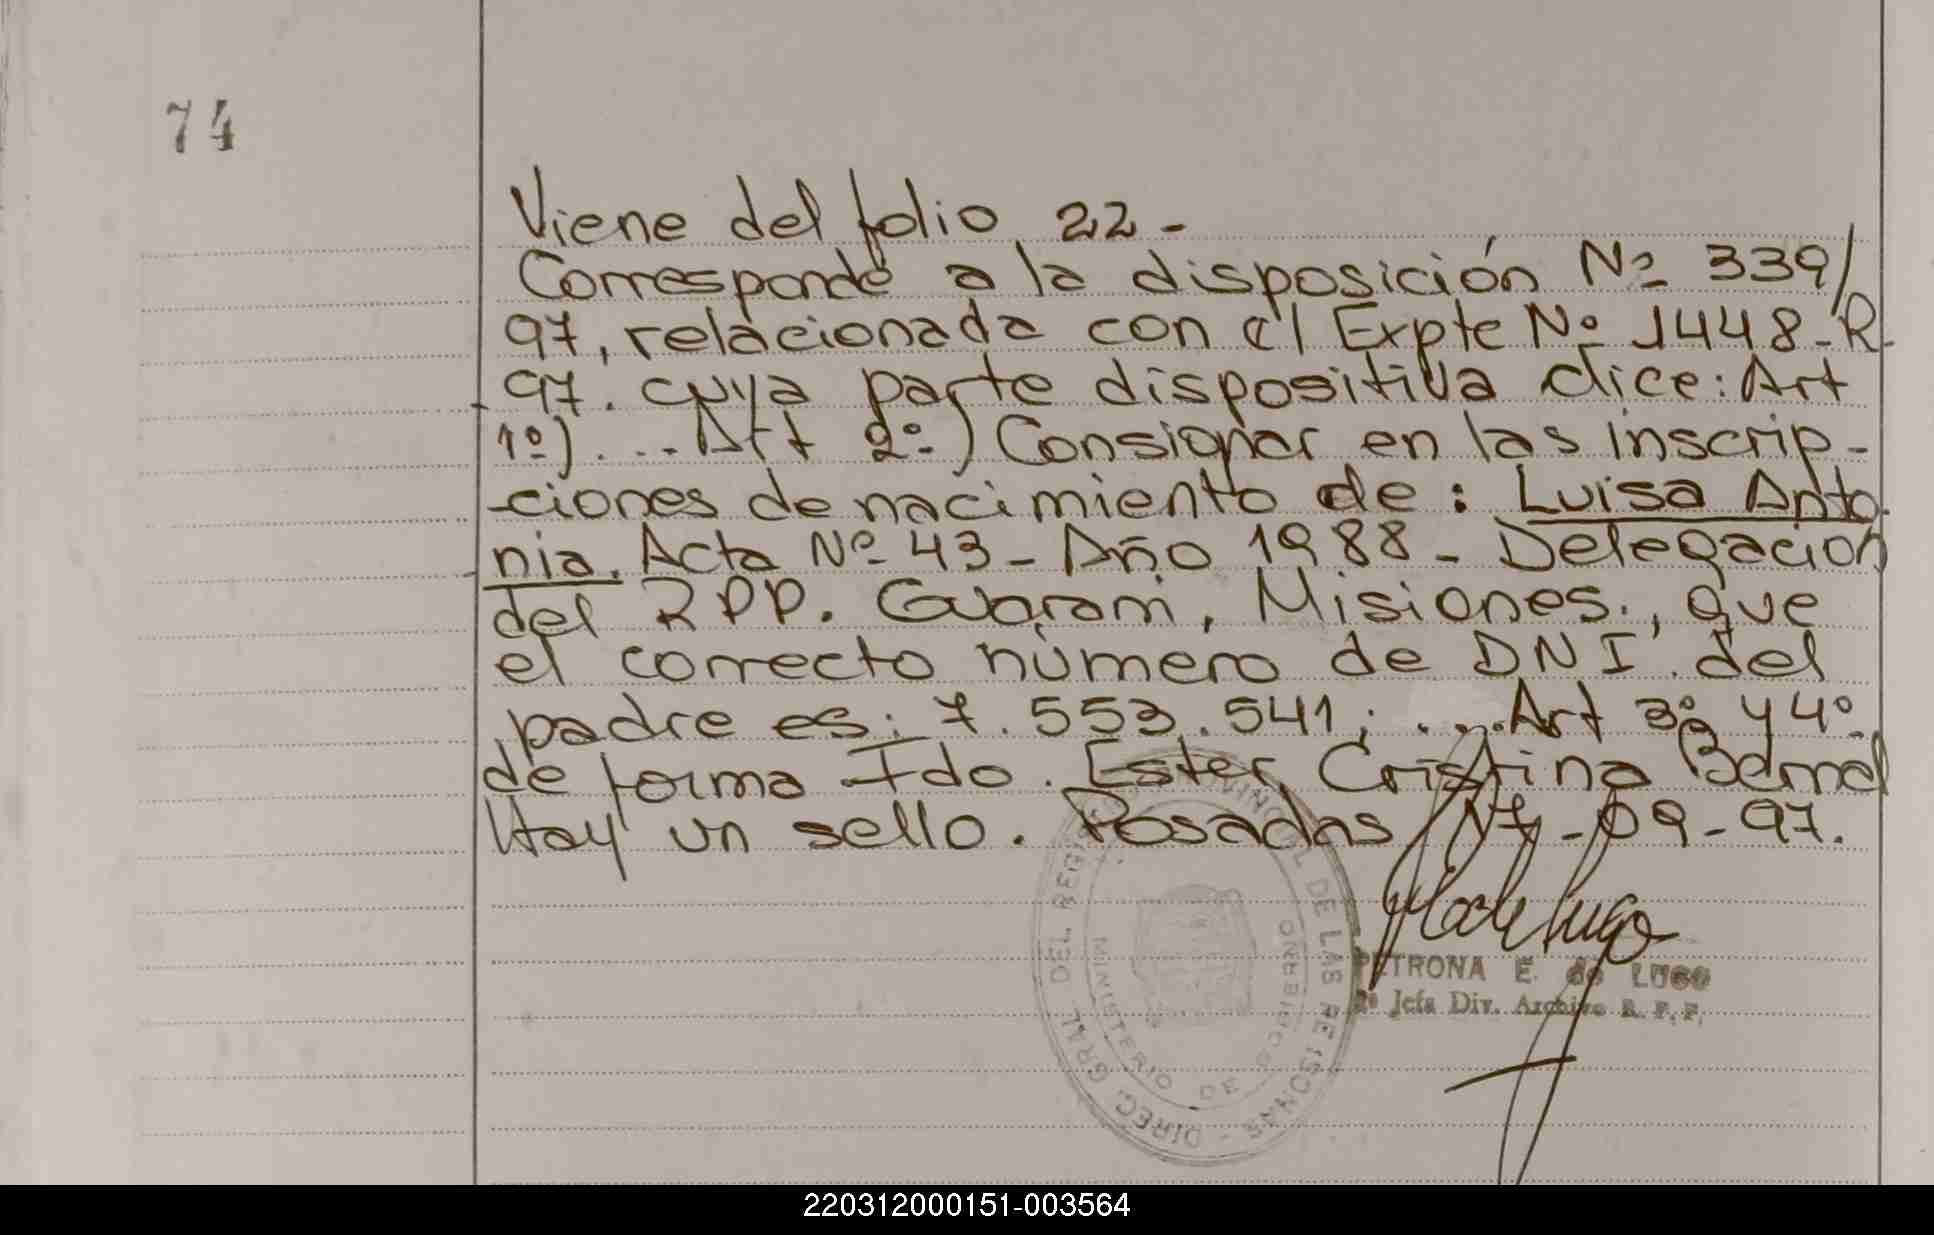 74
Viene del folio 22-
Corresponde a la disposición Nº 339/
97, relacionada con el Expte Nº 1448-R-
97. cuya parte dispositiva dice: Art
1º)....Art 2º) Consignar en las inscrip-
-ciones de nacimiento de: Luisa Anto-
nia. Acta Nº 43 - Año 1988 - Delegación
del RPP. Guarani, Misiones., que
el correcto número de DNI del
padre es: 7.553.541; ....Art 3º y 4º
de forma Fdo. Ester Cristina
Hay un sello. Posadas 17-09-97.
DIREC. GRAL. DEL REG. PROVINCIAL DE LAS PERSONAS -
MINISTERIO DE GOBIERNO
PETRONA E. de LUGO
2º Jefa Div. Archivo R. P. P.
220312000151-003564